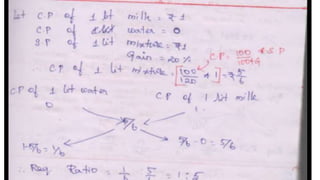 Let C.P of 1 lit milk = ₹1
C.P of 1 lit water = 0
S.P of 1 lit mixture = ₹1
Gain = 20%
C.P = 100/100+G × S.P
∴ C.P of 1 lit mixture = [100/120 × 1] = ₹5/6
C.P of 1 lit water C.P of 1 lit milk
0 1
5/6
1-5/6 = 1/6 5/6 - 0 = 5/6
∴ Req. Ratio = 1/6 : 5/6 = 1:5